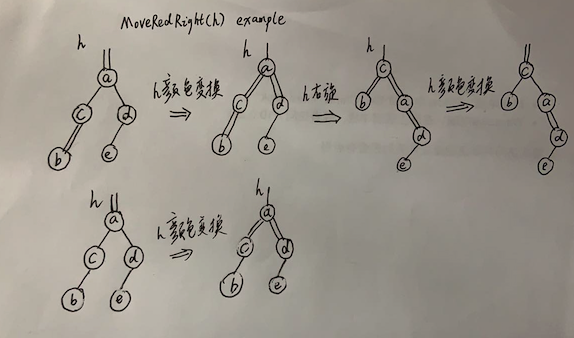 MoveRedRight(h) example
h
a
c
d
b
e
h颜色变换
h
a
c
d
b
e
h右旋
h
c
b
a
d
e
h颜色变换
c
b
a
d
e
h
a
c
d
b
e
h颜色变换
h
a
c
d
b
e